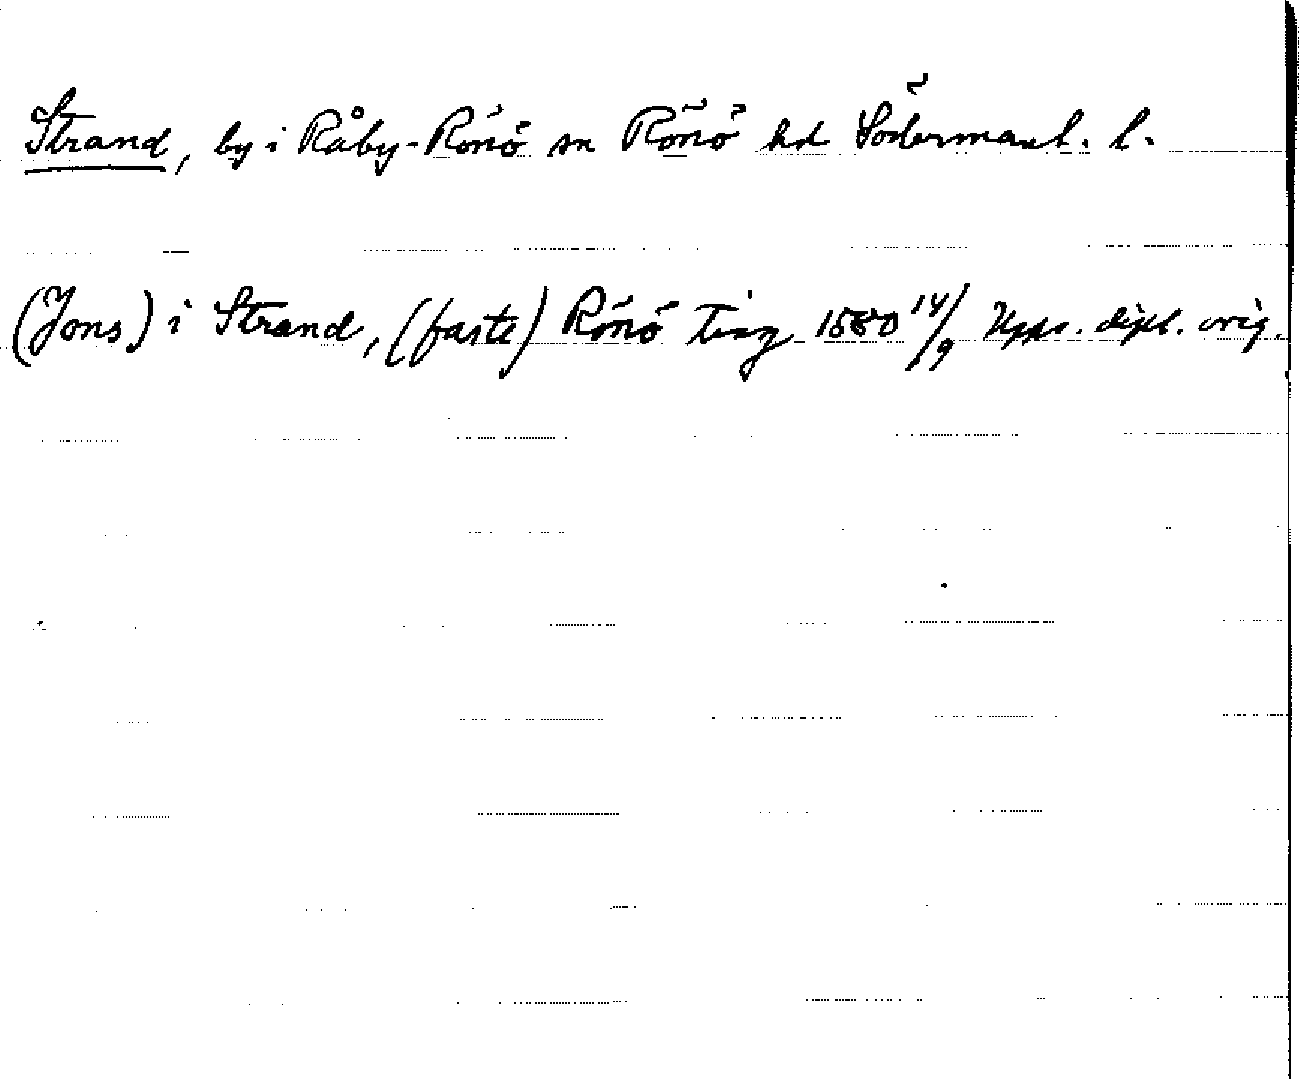 Strand, by i Råby-Rönö sn Rönö hd Södermanl. l.
(Jons) i Strand, (faste) Rönö Ting 1580 14/9 Upps. dipl. orig.